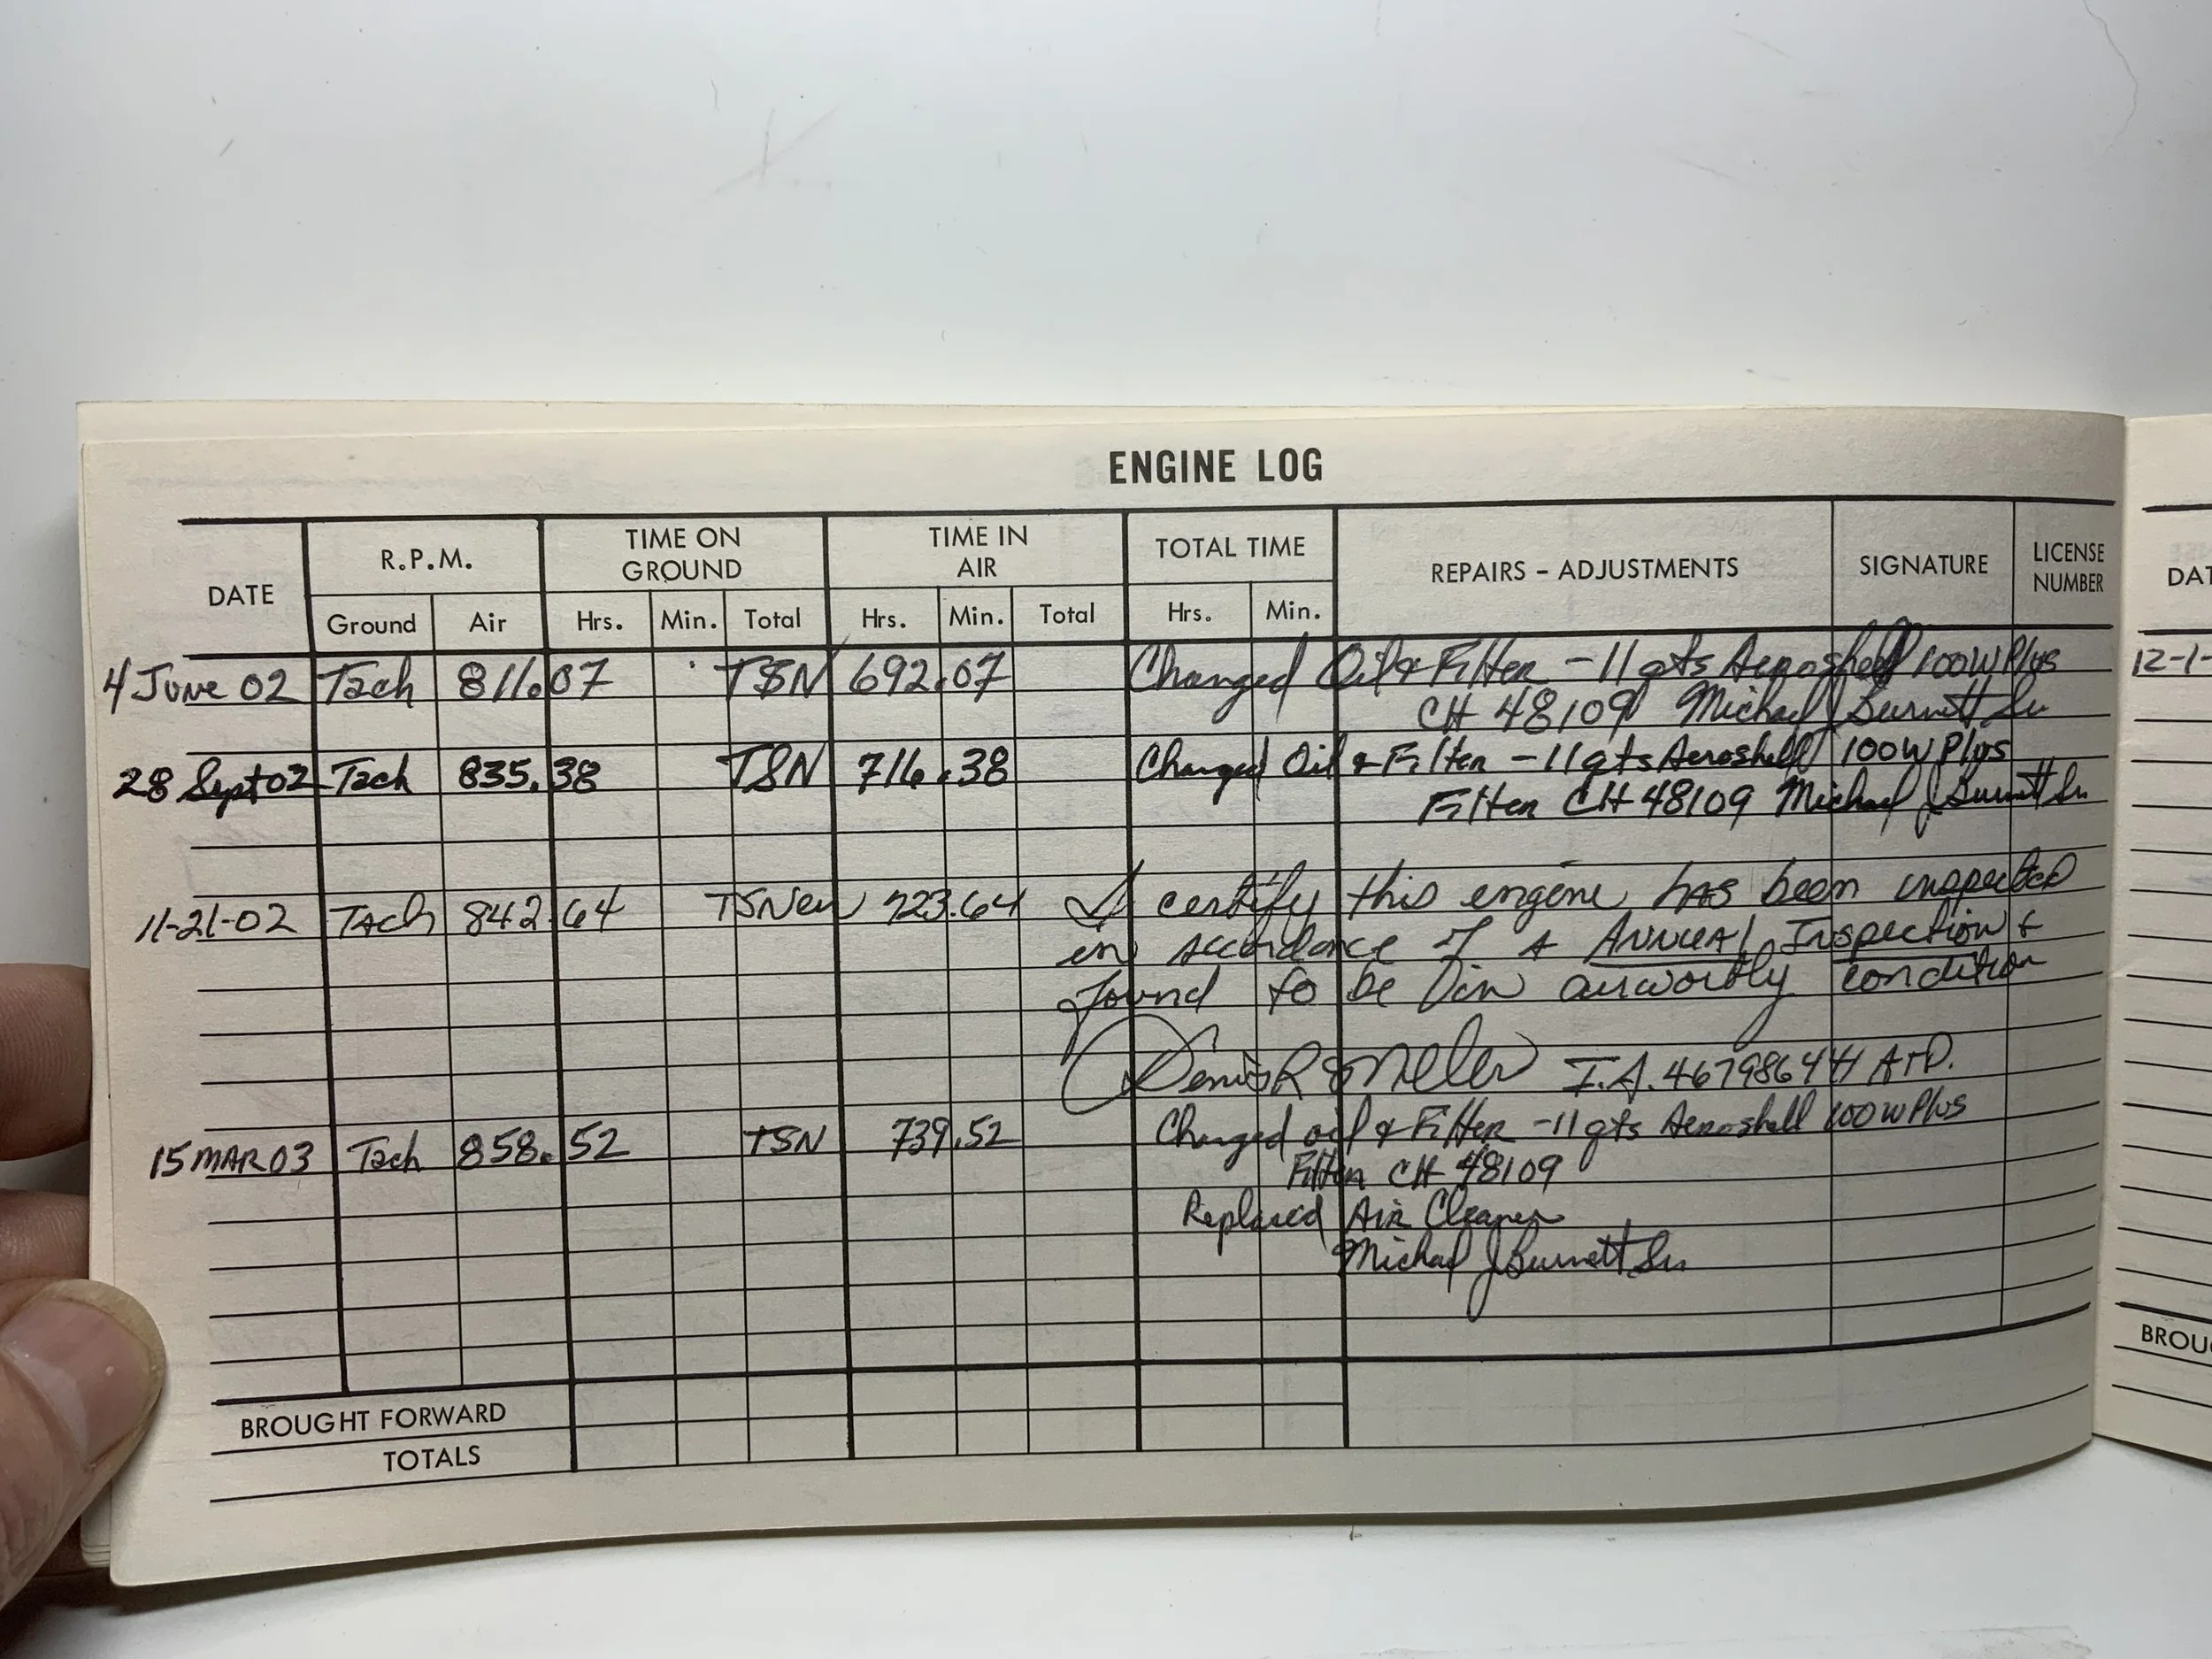 ENGINE LOG
DATE R.P.M. TIME ON GROUND TIME IN AIR TOTAL TIME REPAIRS – ADJUSTMENTS SIGNATURE LICENSE NUMBER
Ground Air Hrs. Min. Total Hrs. Min. Total Hrs. Min.
4 June 02 Tach 811.07 TSN 692.07 Changed Oil & Filter – 11 qts Aeroshell 100W Plus
CH 48109 Michael J Burnett Sr
28 Sept 02 Tach 835.38 TSN 716.38 Changed Oil & Filter – 11 qts Aeroshell 100W Plus
Filter CH 48109 Michael J Burnett Sr
11-21-02 TAch 842.64 TSNew 723.64 I certify this engine has been inspected
in accordance of a Annual Inspection &
found to be in airworthy condition
I.A.
15 MAR 03 Tach 858.52 TSN 739.52 Changed oil & Filter – 11 qts Aeroshell 100W Plus
Filter CH 48109
Replaced Air Cleaner
Michael J Burnett Sr
BROUGHT FORWARD
TOTALS
DAT
12-1-
BROU